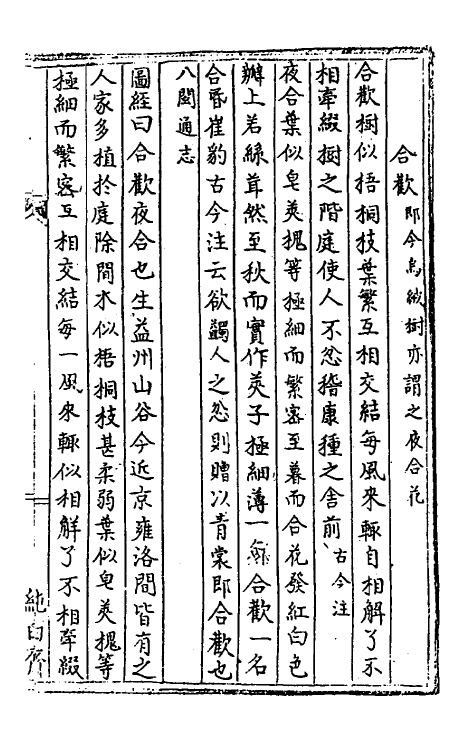 合歡即今烏絨樹亦謂之夜合花
合歡樹似梧桐枝葉繁互相交結每風來輒自相解了不
相牽綴樹之階庭使人不忿嵇康種之舍前古今注
夜合葉似皂莢槐等極細而繁宻至暮而合花發紅白色
瓣上若絲茸然至秋而實作莢子極細薄一名合歡一名
合昏崔豹古今注云欲蠲人之忿則贈以青棠即合歡也
八閩通志
圖經曰合歡夜合也生益州山谷今近京雍洛間皆有之
人家多植於庭除間木似梧桐枝甚柔弱葉似皂莢槐等
極細而繁宻互相交結每一風來輒似相解了不相牽綴
純白齋